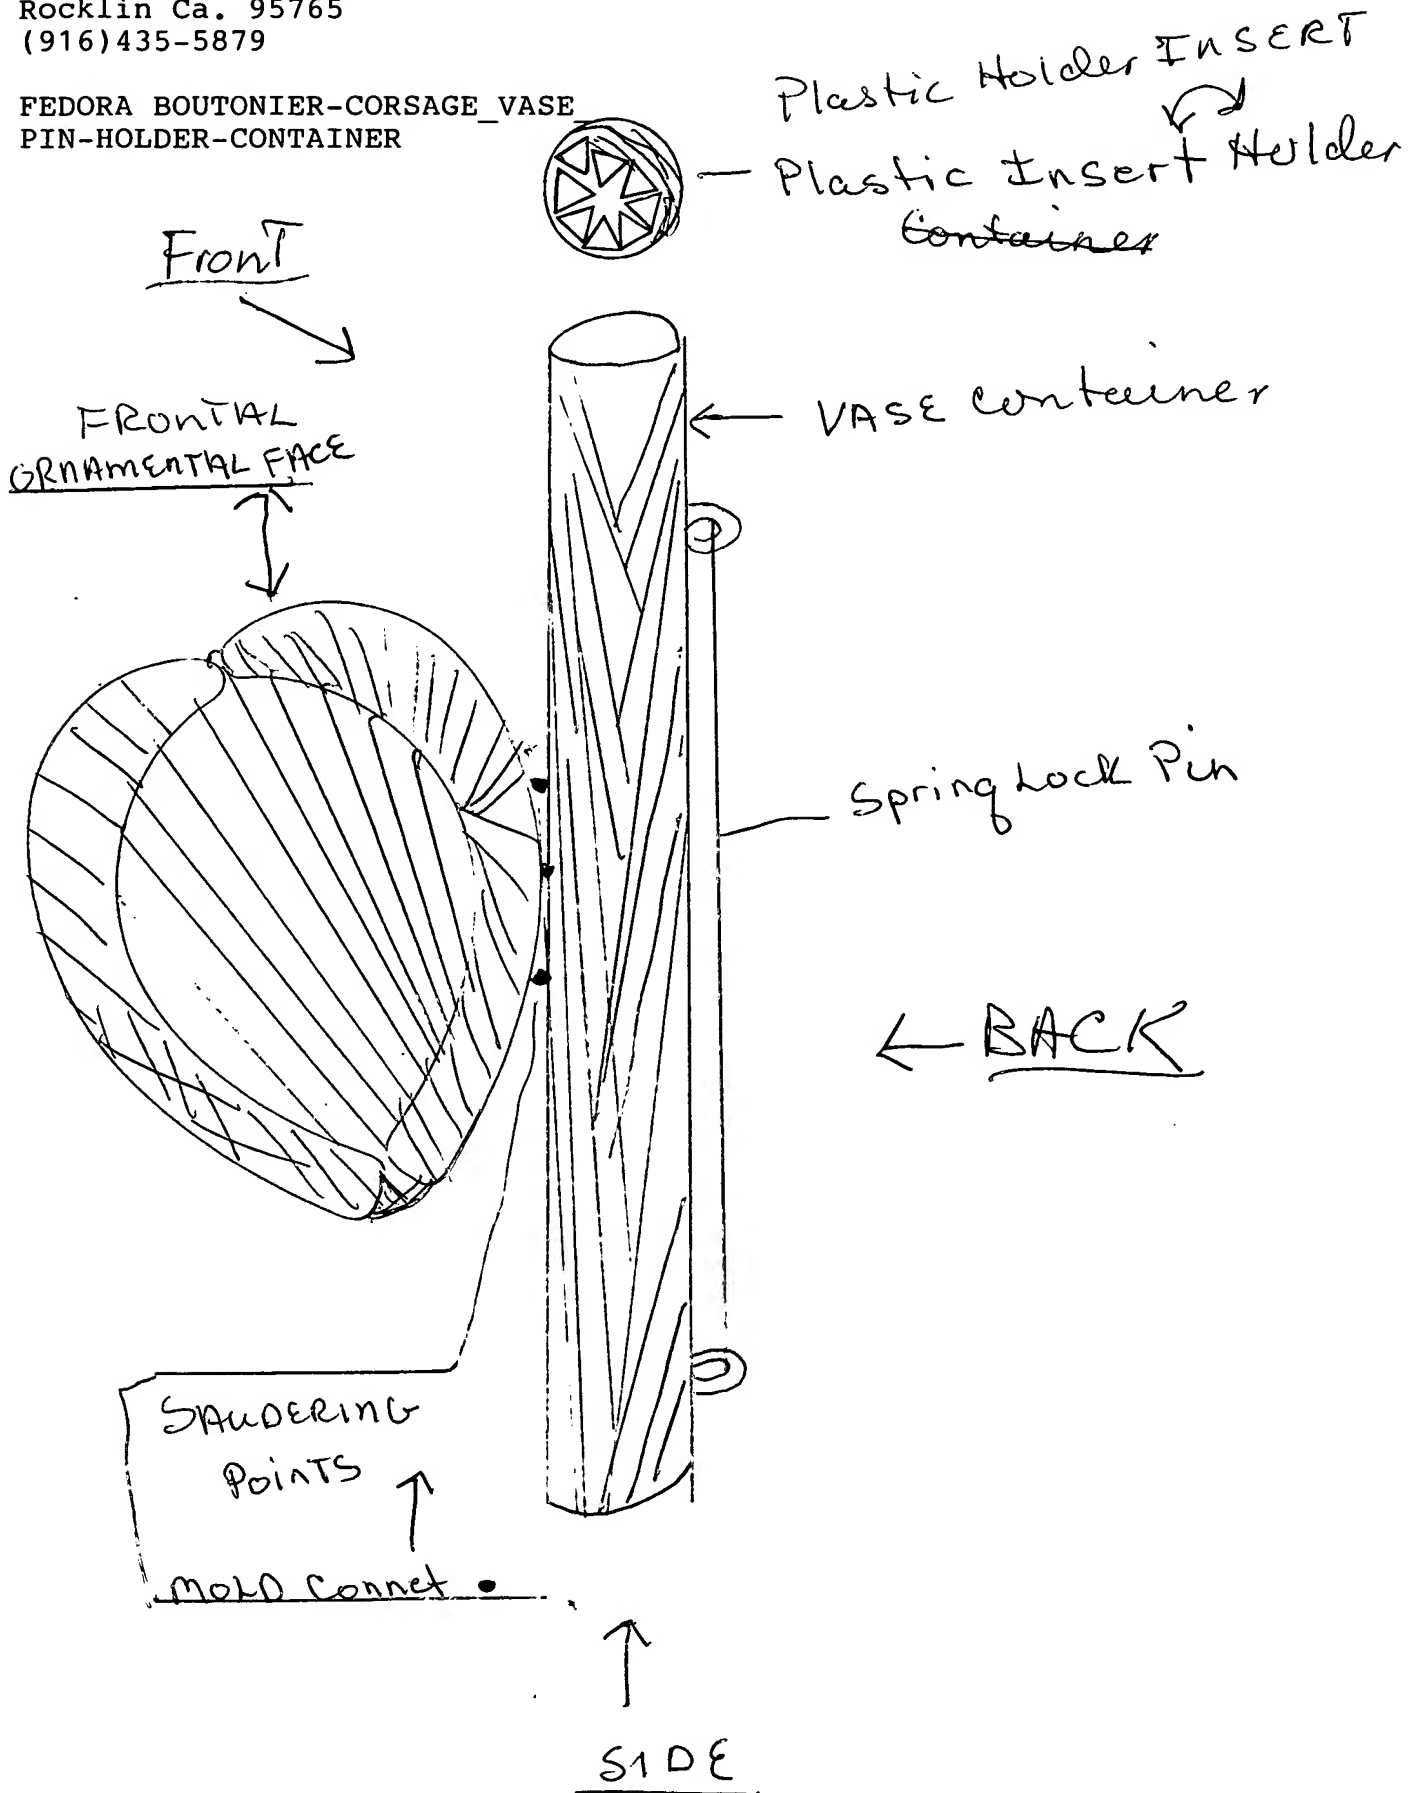 Rocklin Ca. 95765
(916)435-5879
FEDORA BOUTONIER-CORSAGE_VASE
PIN-HOLDER-CONTAINER
Plastic Holder INSERT
Plastic Insert Holder
Container
Front
FRONTIAL
ORNAMENTAL FACE
VASE Container
Spring Lock Pin
BACK
SAUDERING
POINTS
MOLD Connet
SIDE